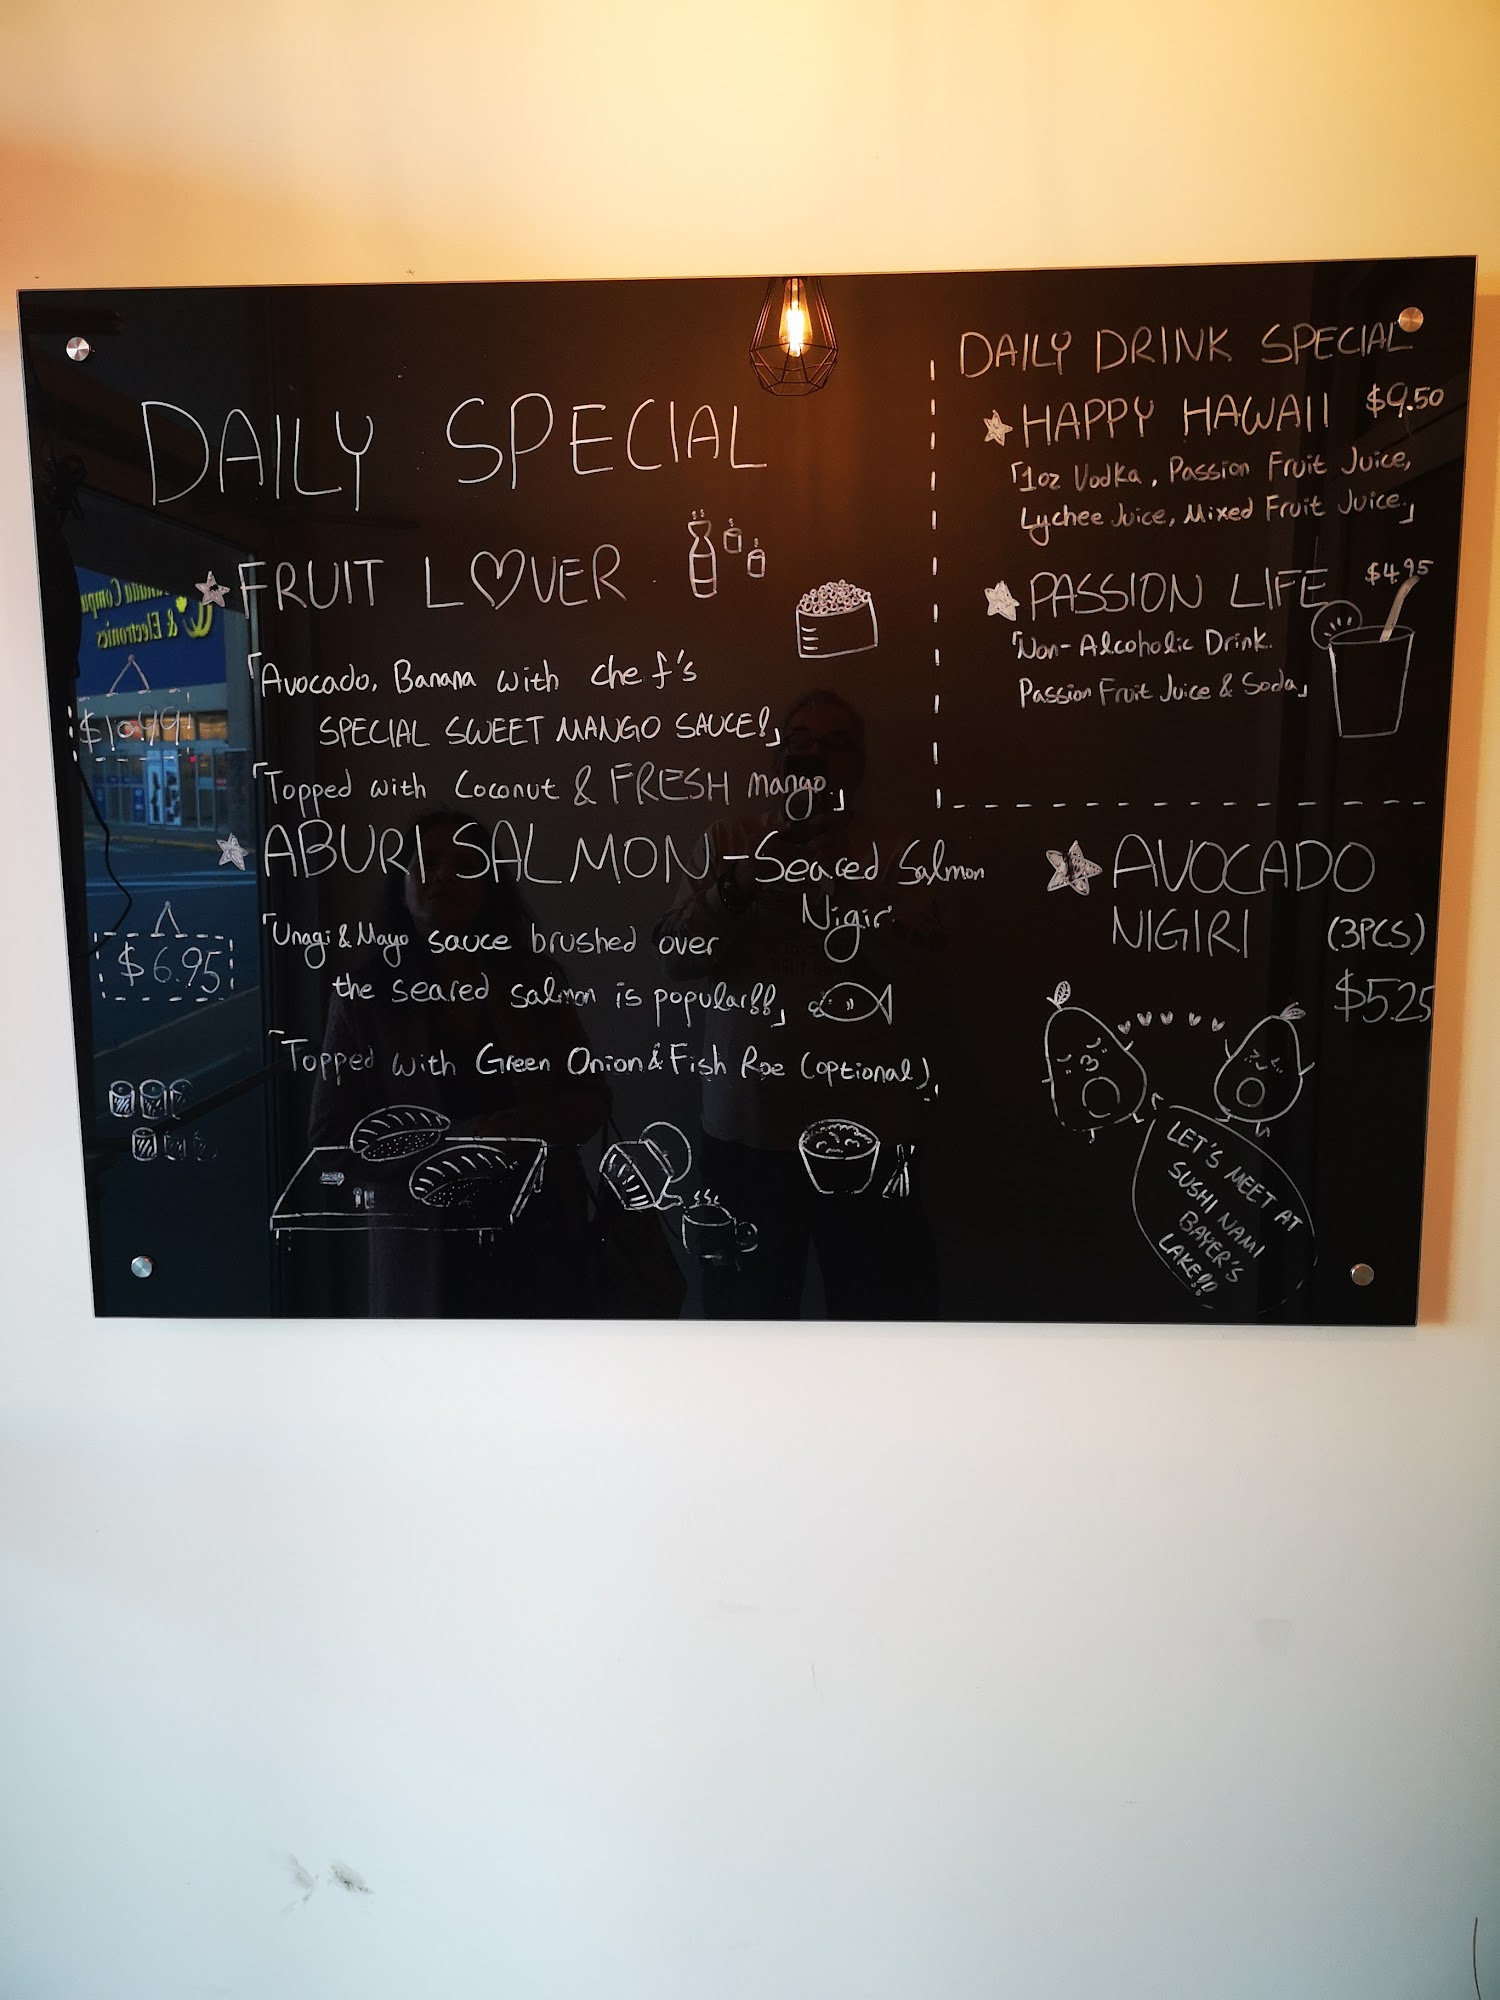 DAILY SPECIAL
FRUIT LOVER
「Avocado, Banana with chef's
SPECIAL SWEET MANGO SAUCE!」
$10.99
「Topped with Coconut & FRESH mango.」
ABURI SALMON - Seared Salmon
Nigiri
「Unagi & Mayo sauce brushed over
$6.95
the seared salmon is popular!!」
「Topped with Green Onion & Fish Roe (optional)」
DAILY DRINK SPECIAL
HAPPY HAWAII $9.50
「1oz Vodka, Passion Fruit Juice,
Lychee Juice, Mixed Fruit Juice.」
PASSION LIFE $4.95
「Non-Alcoholic Drink.
Passion Fruit Juice & Soda」
AVOCADO
NIGIRI (3PCS)
$5.25
LET'S MEET AT
SUSHI NAMI
BAYER'S
LAKE!!
& Electronics